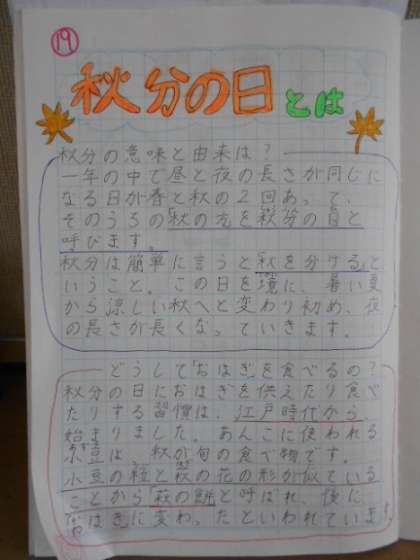 19
秋分の日とは
秋分の意味と由来は？
一年の中で昼と夜の長さが同じに
なる日が春と秋の2回あって、
そのうちの秋の方を秋分の日と
呼びます。
秋分は簡単に言うと「秋を分ける」と
いうこと。この日を境に、暑い夏
から涼しい秋へと変わり初め、夜
の長さが長くなっていきます。
どうして「おはぎ」を食べるの？
秋分の日におはぎを供えたり食べ
たりする習慣は、江戸時代から
始まりました。あんこに使われる
小豆は、秋が旬の食べ物です。
小豆の粒と萩の花の形が似ている
ことから「萩の餅」と呼ばれ、後に
「おはぎ」に変わったといわれています。